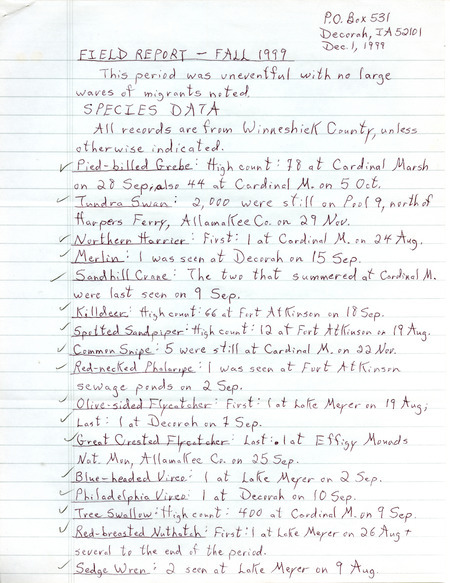 P.O. Box 531
Decorah, IA 52101
Dec. 1, 1999
FIELD REPORT - FALL 1999
This period was uneventful with no large
waves of migrants noted.
SPECIES DATA
All records are from Winneshiek County, unless
otherwise indicated.
✓ Pied-billed Grebe: High count: 78 at Cardinal Marsh
on 28 Sep; also 44 at Cardinal M. on 5 Oct.
✓ Tundra Swan: 2,000 were still on Pool 9, north of
Harpers Ferry, Allamakee Co. on 29 Nov.
✓ Northern Harrier: First: 1 at Cardinal M. on 24 Aug.
✓ Merlin: 1 was seen at Decorah on 15 Sep.
✓ Sandhill Crane: The two that summered at Cardinal M.
were last seen on 9 Sep.
✓ Killdeer: High count: 66 at Fort Atkinson on 18 Sep.
✓ Spotted Sandpiper: High count: 12 at Fort Atkinson on 19 Aug.
✓ Common Snipe: 5 were still at Cardinal M. on 22 Nov.
✓ Red-necked Phalarope: 1 was seen at Fort Atkinson
sewage ponds on 2 Sep.
✓ Olive-sided Flycatcher: First: 1 at Lake Meyer on 19 Aug;
Last: 1 at Decorah on 7 Sep.
✓ Great Crested Flycatcher: Last: 1 at Effigy Mounds
Nat. Mon, Allamakee Co. on 25 Sep.
✓ Blue-headed Vireo: 1 at Lake Meyer on 2 Sep.
✓ Philadelphia Vireo: 1 at Decorah on 10 Sep.
✓ Tree Swallow: High count: 400 at Cardinal M. on 9 Sep.
✓ Red-breasted Nuthatch: First: 1 at Lake Meyer on 26 Aug +
several to the end of the period.
✓ Sedge Wren: 2 seen at Lake Meyer on 9 Aug.